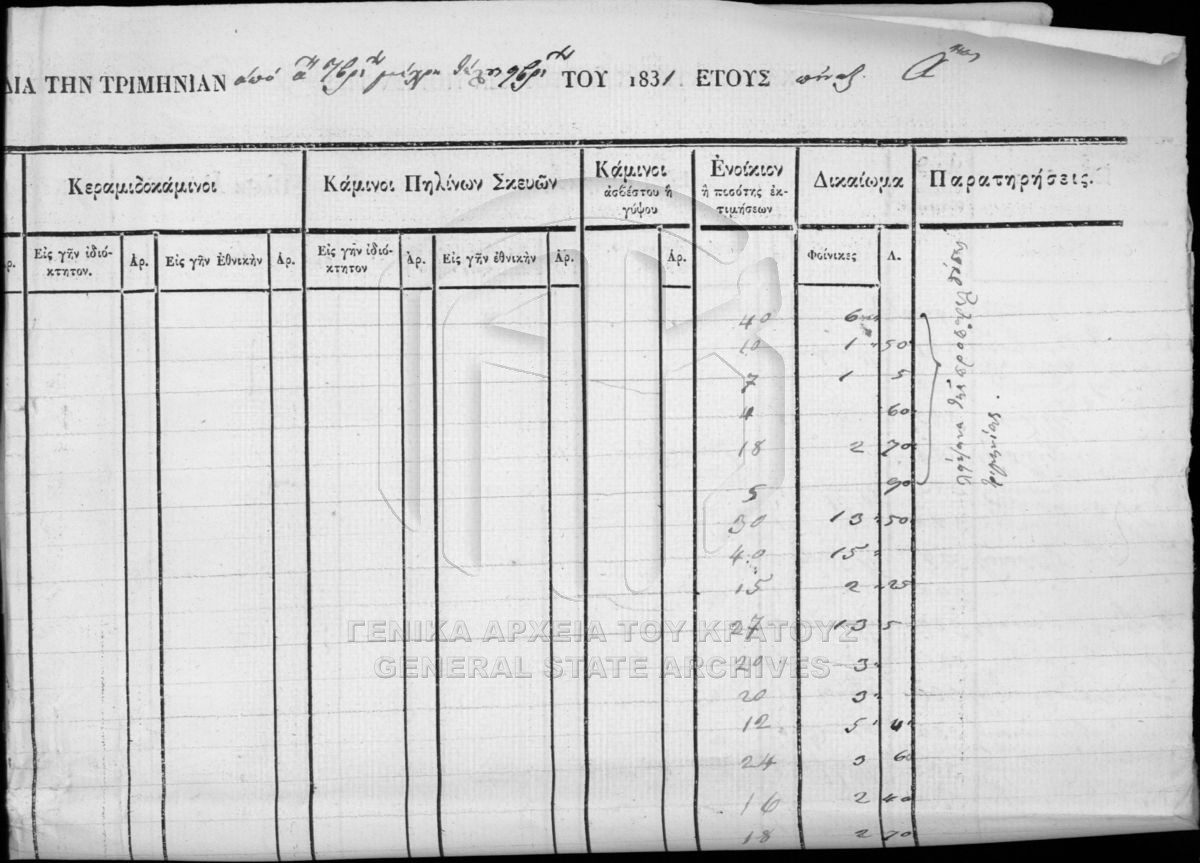 ΔΙΑ ΤΗΝ ΤΡΙΜΗΝΙΑΝ ἀπό ΤΟΥ 1831 ΕΤΟΥΣ πίναξ
Κεραμιδοκάμινοι Κάμινοι Πηλίνων Σκευῶν Κάμινοι ἀσβέστου ἢ γύψου Ἐνοίκιον ἢ ποσότης ἐκτιμήσεων Δικαίωμα Παρατηρήσεις.
Ἀρ. Εἰς γῆν ἰδιόκτητον. Ἀρ. Εἰς γῆν Ἐθνικὴν Ἀρ. Εἰς γῆν ἰδιόκτητον Ἀρ. Εἰς γῆν ἐθνικὴν Ἀρ. Ἀρ. Φοίνικες Λ.
40 6
10 1 50
7 1 5
4 60
18 2 70
5 90
30 13 50
40 15
15 2 25
27 13 5
20 3
20 3
12 5 4
24 3 60
16 2 40
18 2 70
ΓΕΝΙΚΑ ΑΡΧΕΙΑ ΤΟΥ ΚΡΑΤΟΥΣ
GENERAL STATE ARCHIVES